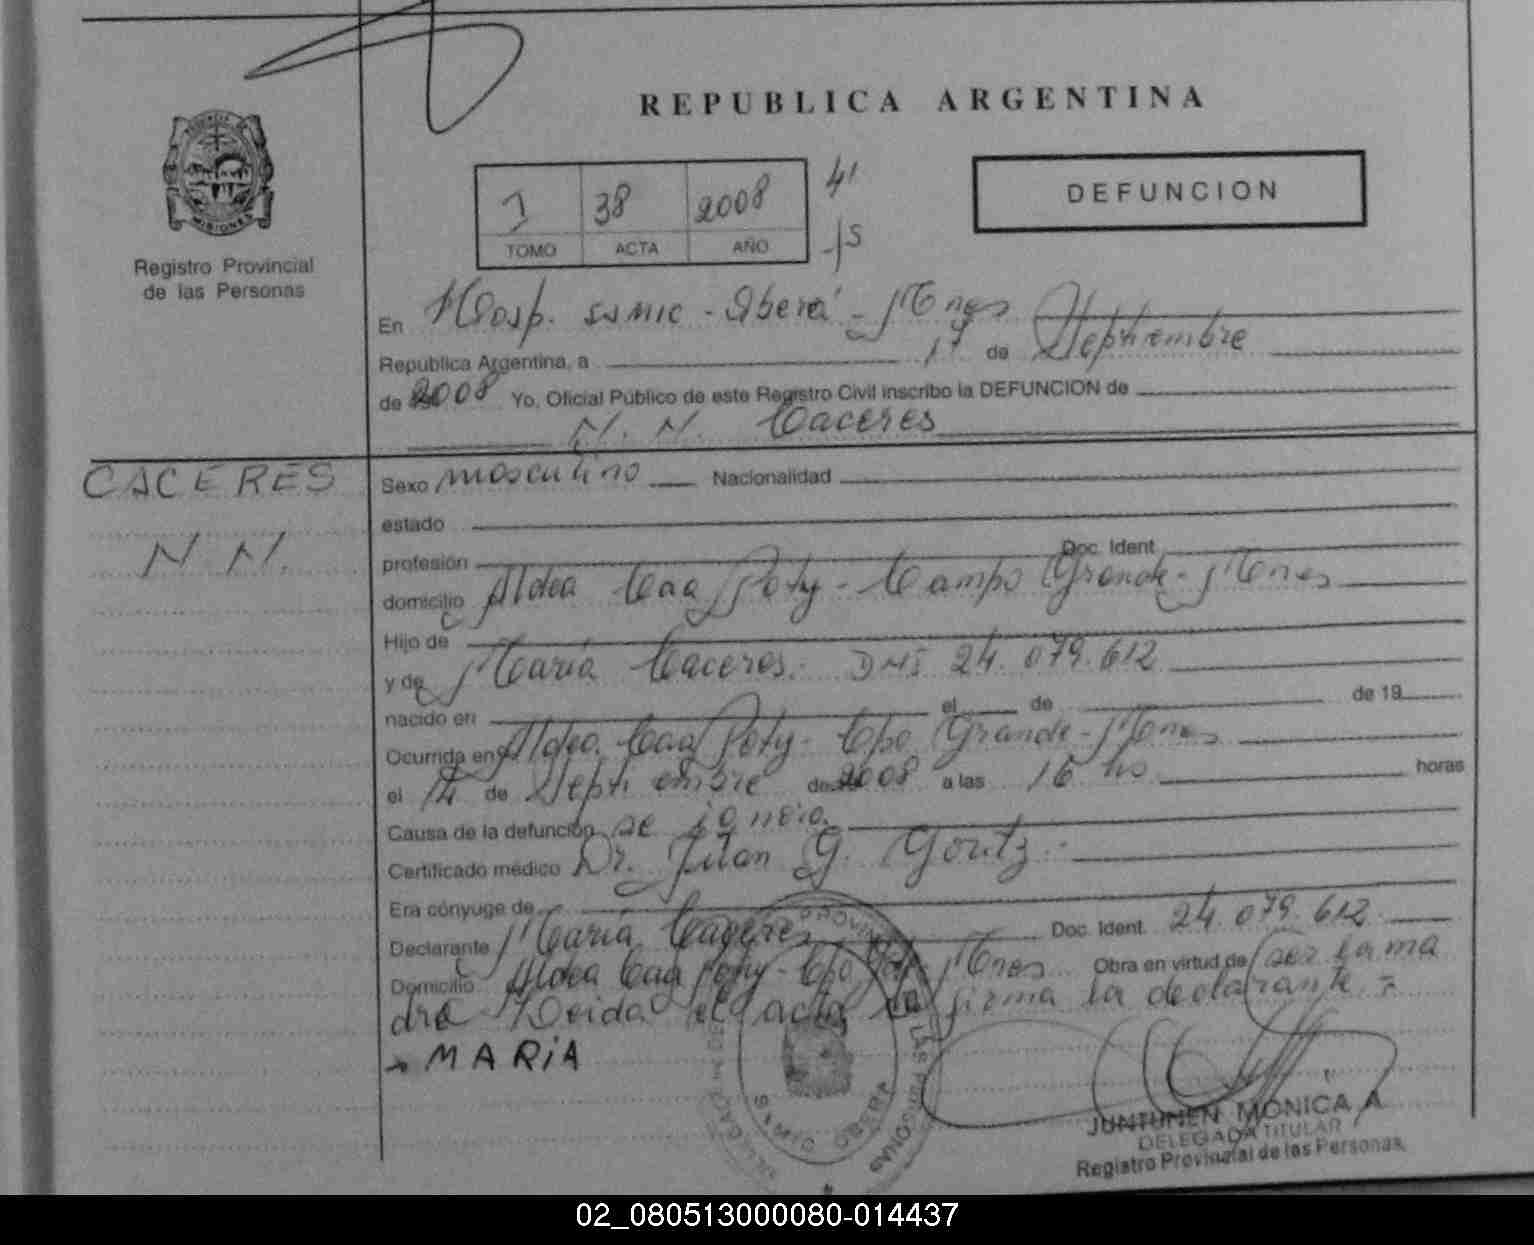 REPUBLICA ARGENTINA
PROVINCIA DE
MISIONES
Registro Provincial
de las Personas
38 2008
TOMO ACTA AÑO
DEFUNCION
En Hosp. SAMIC - Oberá - Mnes
República Argentina, a de Septiembre
de 2008 Yo, Oficial Público de este Registro Civil inscribo la DEFUNCION de
N. N. Caceres
CACERES
N N.
Sexo masculino Nacionalidad
estado
profesión Doc. Ident.
domicilio Aldea Caa Poty - Campo Grande - Mnes
Hijo de
y de María Caceres. DNI 24.079.612
nacido en el de de 19
Ocurrida en Aldea Caa Poty - Cpo Grande - Mnes
el 14 de Septiembre de 2008 a las 16 hs horas
Causa de la defunción se ignora.
Certificado médico Dr. Juan G. Goritz.
Era cónyuge de
Declarante María Caceres Doc. Ident. 24.079.612
Domicilio Aldea Caa Poty - Cpo Mnes Obra en virtud de ser la ma
dre Leida el acta la firma la declarante =
MARiA
JUNTUNEN MONICA A
DELEGADA TITULAR
Registro Provincial de las Personas
02_080513000080-014437